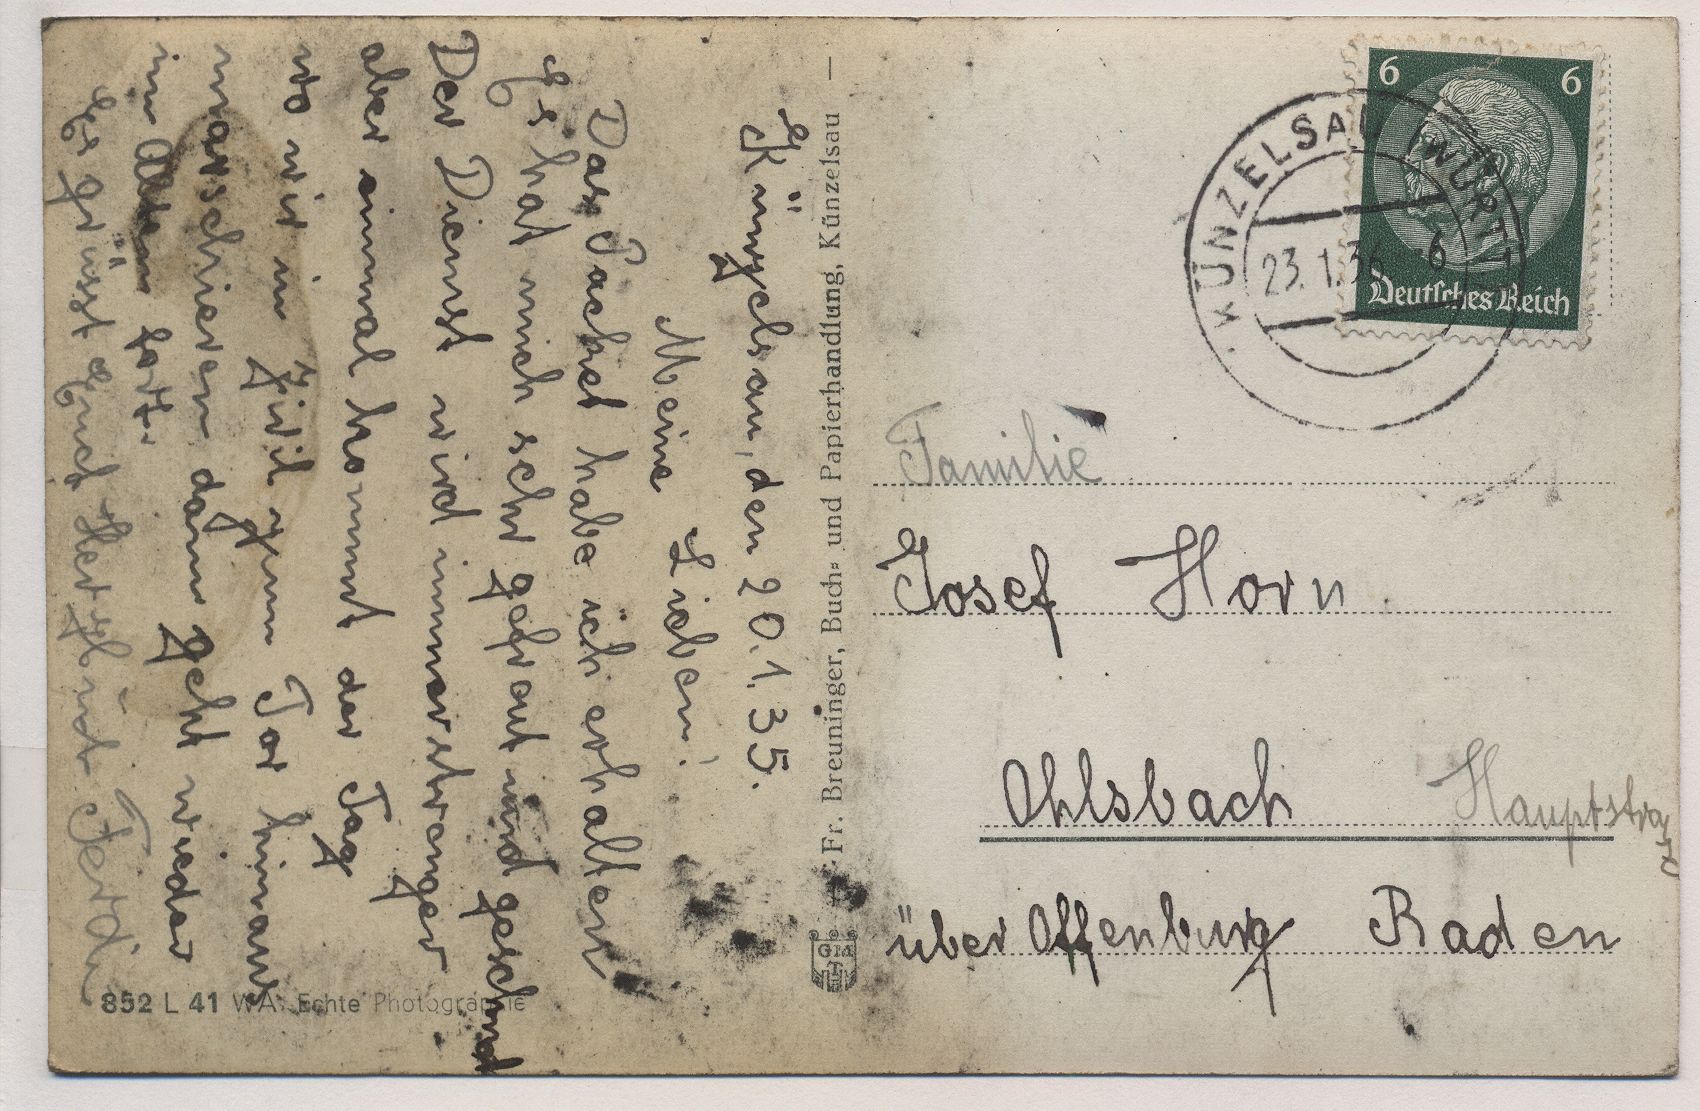 Künzelsau, den 20.1.35.
Meine Lieben!
Das Packet habe ich erhalten
Es hat mich sehr gefraut und geschmd
Der Dienst wird immer strenger
aber einmal kommt der Tag
wo wir in Zivil zum Tor hinaus
marschieren dann geht wieder
im Alten fort.
Es grüsst Euch Herzlich Ferdi
852 L 41 W.A. Echte Photographie
Fr. Breuninger, Buch- und Papierhandlung, Künzelsau —
6 6
Deutsches Reich
KÜNZELSAU (WÜRTT)
23.1.36 6
Familie
Josef Horn
Ohlsbach Hauptstrasse
über Offenburg Baden